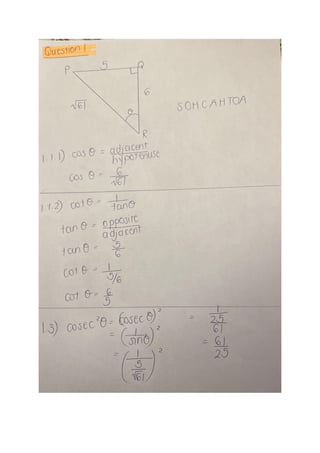 Question 1
P 5 Q
6
√61
θ
R
SOHCAHTOA
1.1.1) cos θ = adjacent / hypotenuse
cos θ = 6/√61
1.1.2) cot θ = 1/tanθ
tan θ = opposite / adjacent
tan θ = 5/6
cot θ = 1/5/6
cot θ = 6/5
1.3) cosec²θ = (cosec θ)²
= (1/sinθ)²
= (1/5/√61)²
= 1/25/61
= 61/25